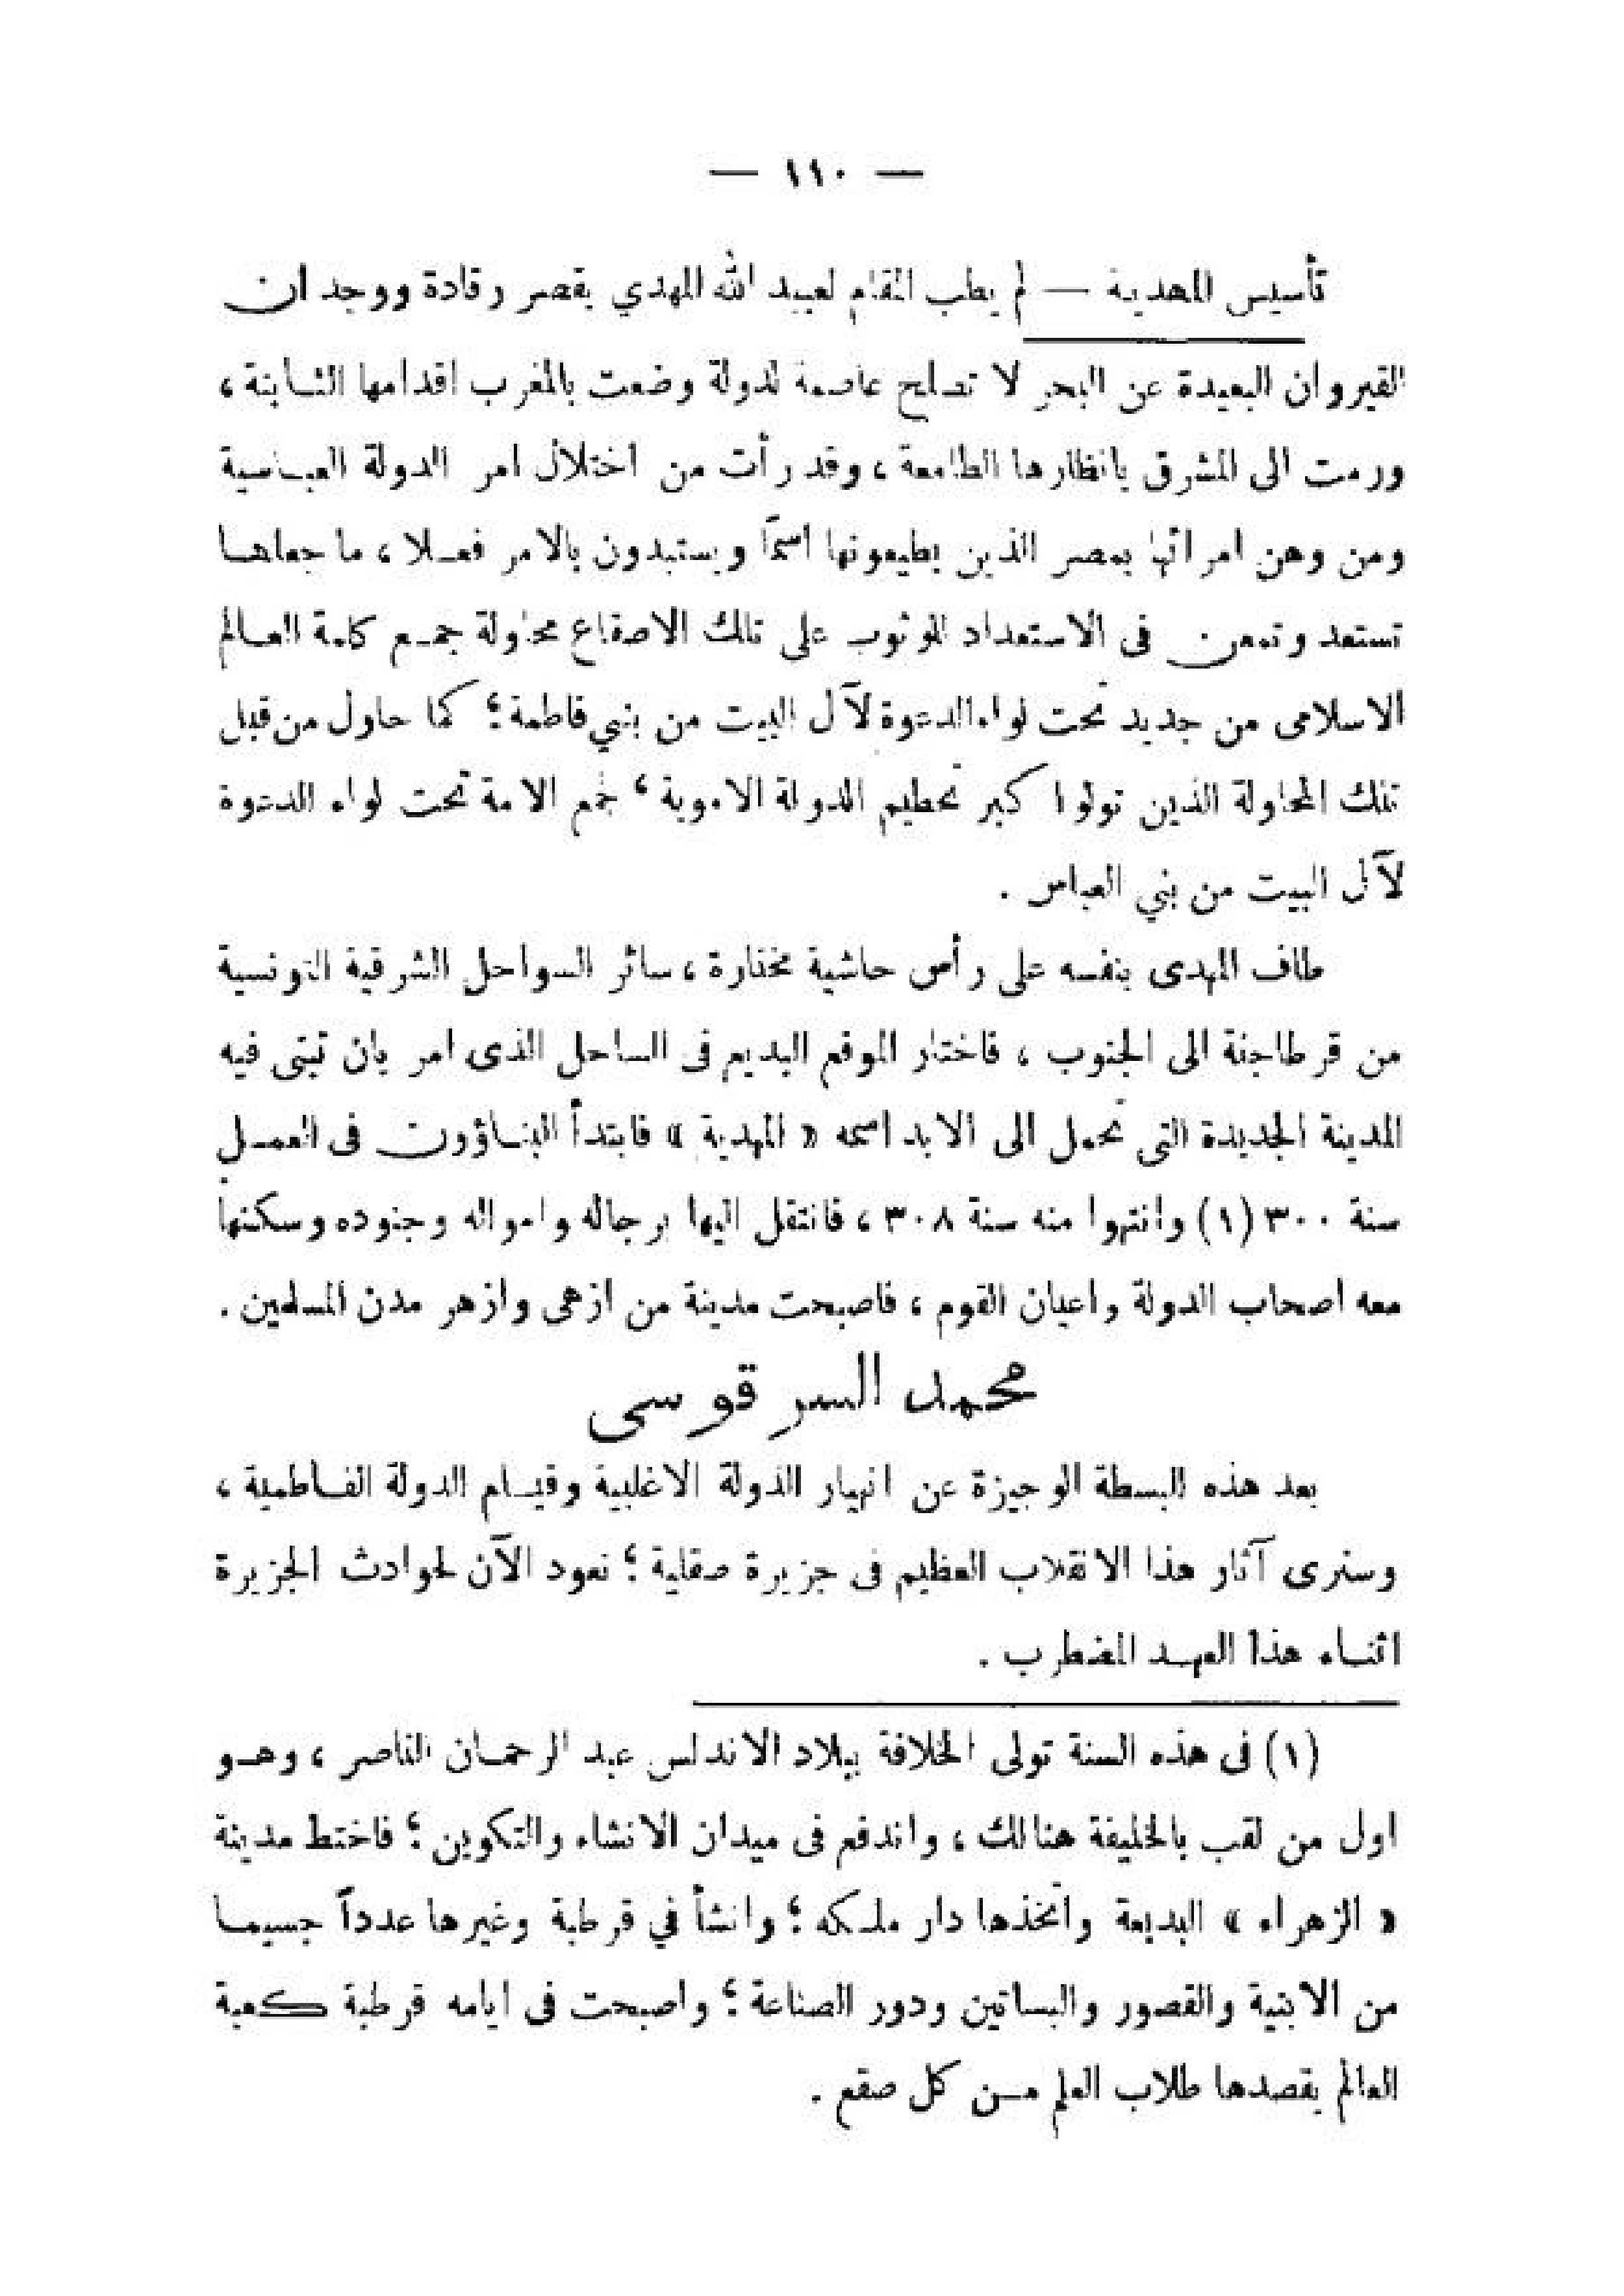 — ١١٠ —
تأسيس المهدية — لم يطب المقام لعبيد الله المهدي بقصر رقادة ووجد ان
القيروان البعيدة عن البحر لا تصلح عاصمة لدولة وضعت بالمغرب اقدامها الثابتة ،
ورمت الى المشرق بانظارها الطامعة ، وقد رأت من اختلال امر الدولة العباسية
ومن وهن امرائها بمصر الذين يطيعونها اسمًا ويستبدون بالامر فعلا ، ما جعلها
تستعد وتمعن فى الاستعداد للوثوب على تلك الاصقاع محاولة جمع كلمة العالم
الاسلامى من جديد تحت لواء الدعوة لآل البيت من بني فاطمة ؛ كما حاول من قبل
تلك المحاولة الذين تولوا كبر تحطيم الدولة الاموية ، لجمع الامة تحت لواء الدعوة
لآل البيت من بني العباس .
طاف المهدى بنفسه على رأس حاشية مختارة ، سائر السواحل الشرقية التونسية
من قرطاجنة الى الجنوب ، فاختار الموقع البديع فى الساحل الذى امر بان تبتى فيه
المدينة الجديدة التى تحمل الى الابد اسمه « المهدية » فابتدأ البناؤون فى العمل
سنة ٣٠٠ (١) وانتهوا منه سنة ٣٠٨ ، فانتقل اليها برجاله وامواله وجنوده وسكنها
معه اصحاب الدولة واعيان القوم ، فاصبحت مدينة من ازهى وازهر مدن المسلمين .
محمد السرقوسى
بعد هذه البسطة الوجيزة عن انهيار الدولة الاغلبية وقيام الدولة الفاطمية ،
وسنرى آثار هذا الانقلاب العظيم فى جزيرة صقلية ؛ نعود الآن لحوادث الجزيرة
اثناء هذا العهد المضطرب .
(١) فى هذه السنة تولى الخلافة ببلاد الاندلس عبد الرحمان الناصر ، وهو
اول من لقب بالخليفة هنالك ، واندفع فى ميدان الانشاء والتكوين ؛ فاختط مدينة
« الزهراء » البديعة واتخذها دار ملكه ؛ وانشأ في قرطبة وغيرها عدداً جسيما
من الابنية والقصور والبساتين ودور الصناعة ؛ واصبحت فى ايامه قرطبة كعبة
العالم يقصدها طلاب العلم من كل صقع .